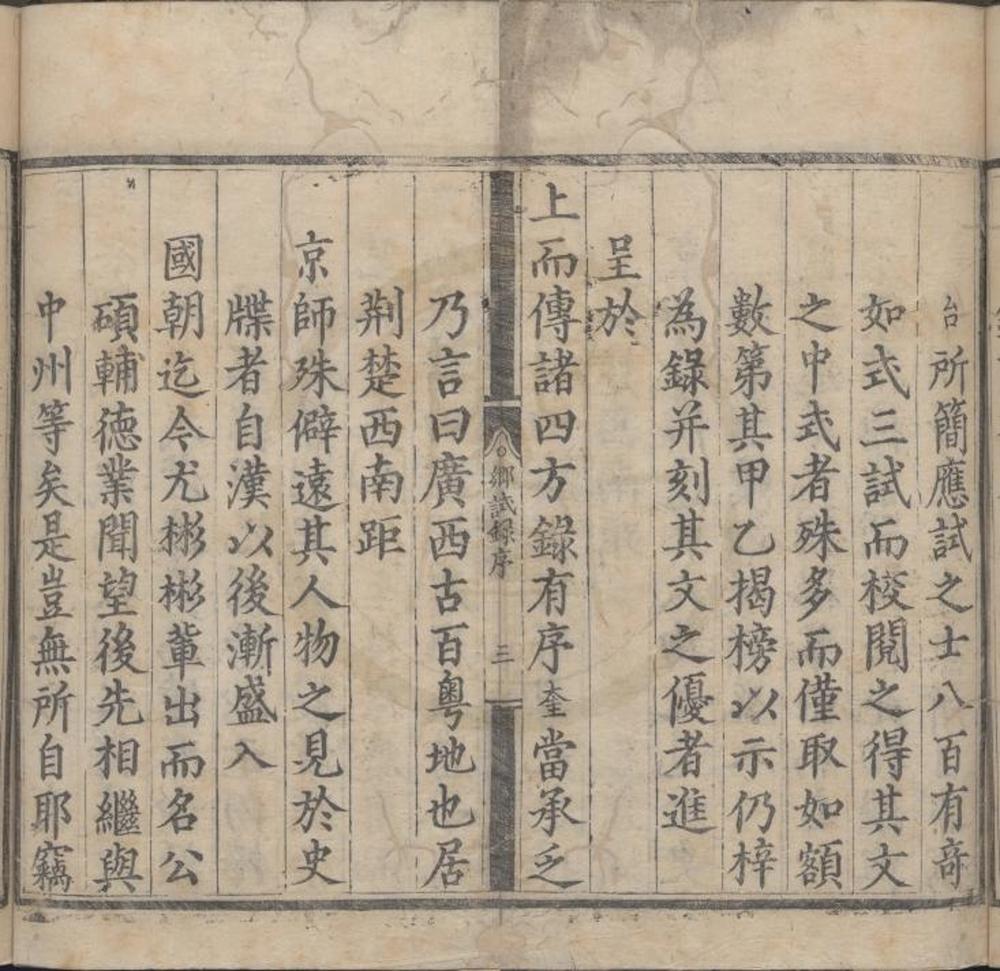 台所簡應試之士八百有竒
如式三試而校閱之得其文
之中式者殊多而僅取如額
數第其甲乙揭榜以示仍梓
為錄并刻其文之優者進
呈於
上而傳諸四方錄有序奎當承乏
鄉試錄序 三
乃言曰廣西古百粵地也居
荆楚西南距
京師殊僻遠其人物之見於史
牒者自漢以後漸盛入
國朝迄今尤彬彬輩出而名公
碩輔徳業聞望後先相繼與
中州等矣是豈無所自耶竊